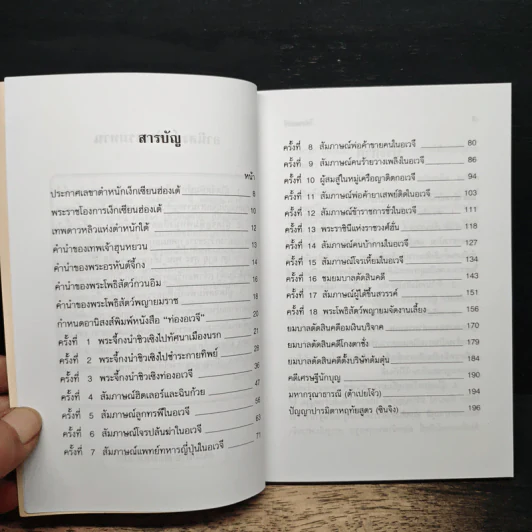 สารบัญ
หน้า
ประกาศเลขาตำหนักเง็กเซียนฮ่องเต้ 8
พระราชโองการเง็กเซียนฮ่องเต้ 10
เทพดาวหลิวแห่งตำหนักใต้ 12
คำนำของเทพเจ้าฮุนหยวน 13
คำนำของพระอรหันต์จี้กง 14
คำนำของพระโพธิสัตว์กวนอิม 16
คำนำของพระโพธิสัตว์พญายมราช 18
กำหนดอานิสงส์พิมพ์หนังสือ "ท่องอเวจี" 20
ครั้งที่ 1 พระจี้กงนำชิวเซิงไปทัศนาเมืองนรก 21
ครั้งที่ 2 พระจี้กงนำชิวเซิงไปชำระกายทิพย์ 29
ครั้งที่ 3 พระจี้กงนำชิวเซิงท่องอเวจี 36
ครั้งที่ 4 สัมภาษณ์ฮิตเลอร์และฉินก้วย 47
ครั้งที่ 5 สัมภาษณ์ลูกทรพีในอเวจี 56
ครั้งที่ 6 สัมภาษณ์โจรปล้นฆ่าในอเวจี 63
ครั้งที่ 7 สัมภาษณ์แพทย์ทหารญี่ปุ่นในอเวจี 71
ครั้งที่ 8 สัมภาษณ์พ่อค้าขายคนในอเวจี 80
ครั้งที่ 9 สัมภาษณ์คนร้ายวางเพลิงในอเวจี 86
ครั้งที่ 10 ผู้สมสู่ในหมู่เครือญาติตกอเวจี 94
ครั้งที่ 11 สัมภาษณ์พ่อค้ายาเสพย์ติดในอเวจี 103
ครั้งที่ 12 สัมภาษณ์ข้าราชการชั่วในอเวจี 111
ครั้งที่ 13 พระราชินีแห่งราชวงศ์ฮั่น 118
ครั้งที่ 14 สัมภาษณ์คนบ้ากามในอเวจี 127
ครั้งที่ 15 สัมภาษณ์โจรเหี้ยมในอเวจี 134
ครั้งที่ 16 ชมยมบาลตัดสินคดี 143
ครั้งที่ 17 สัมภาษณ์ผู้ได้ขึ้นสวรรค์ 151
ครั้งที่ 18 พระโพธิสัตว์พญายมจัดงานเลี้ยง 156
ยมบาลตัดสินคดีอมเงินบริจาค 170
ยมบาลตัดสินคดีโกงตาชั่ง 179
ยมบาลตัดสินคดีตั้งบริษัทต้มตุ๋น 184
คดีเศรษฐีนักบุญ 190
มหากรุณาธารณี (ต้าเปยโจ้ว) 194
ปัญญาปารมิตาหฤทัยสูตร (ซินจิง) 196